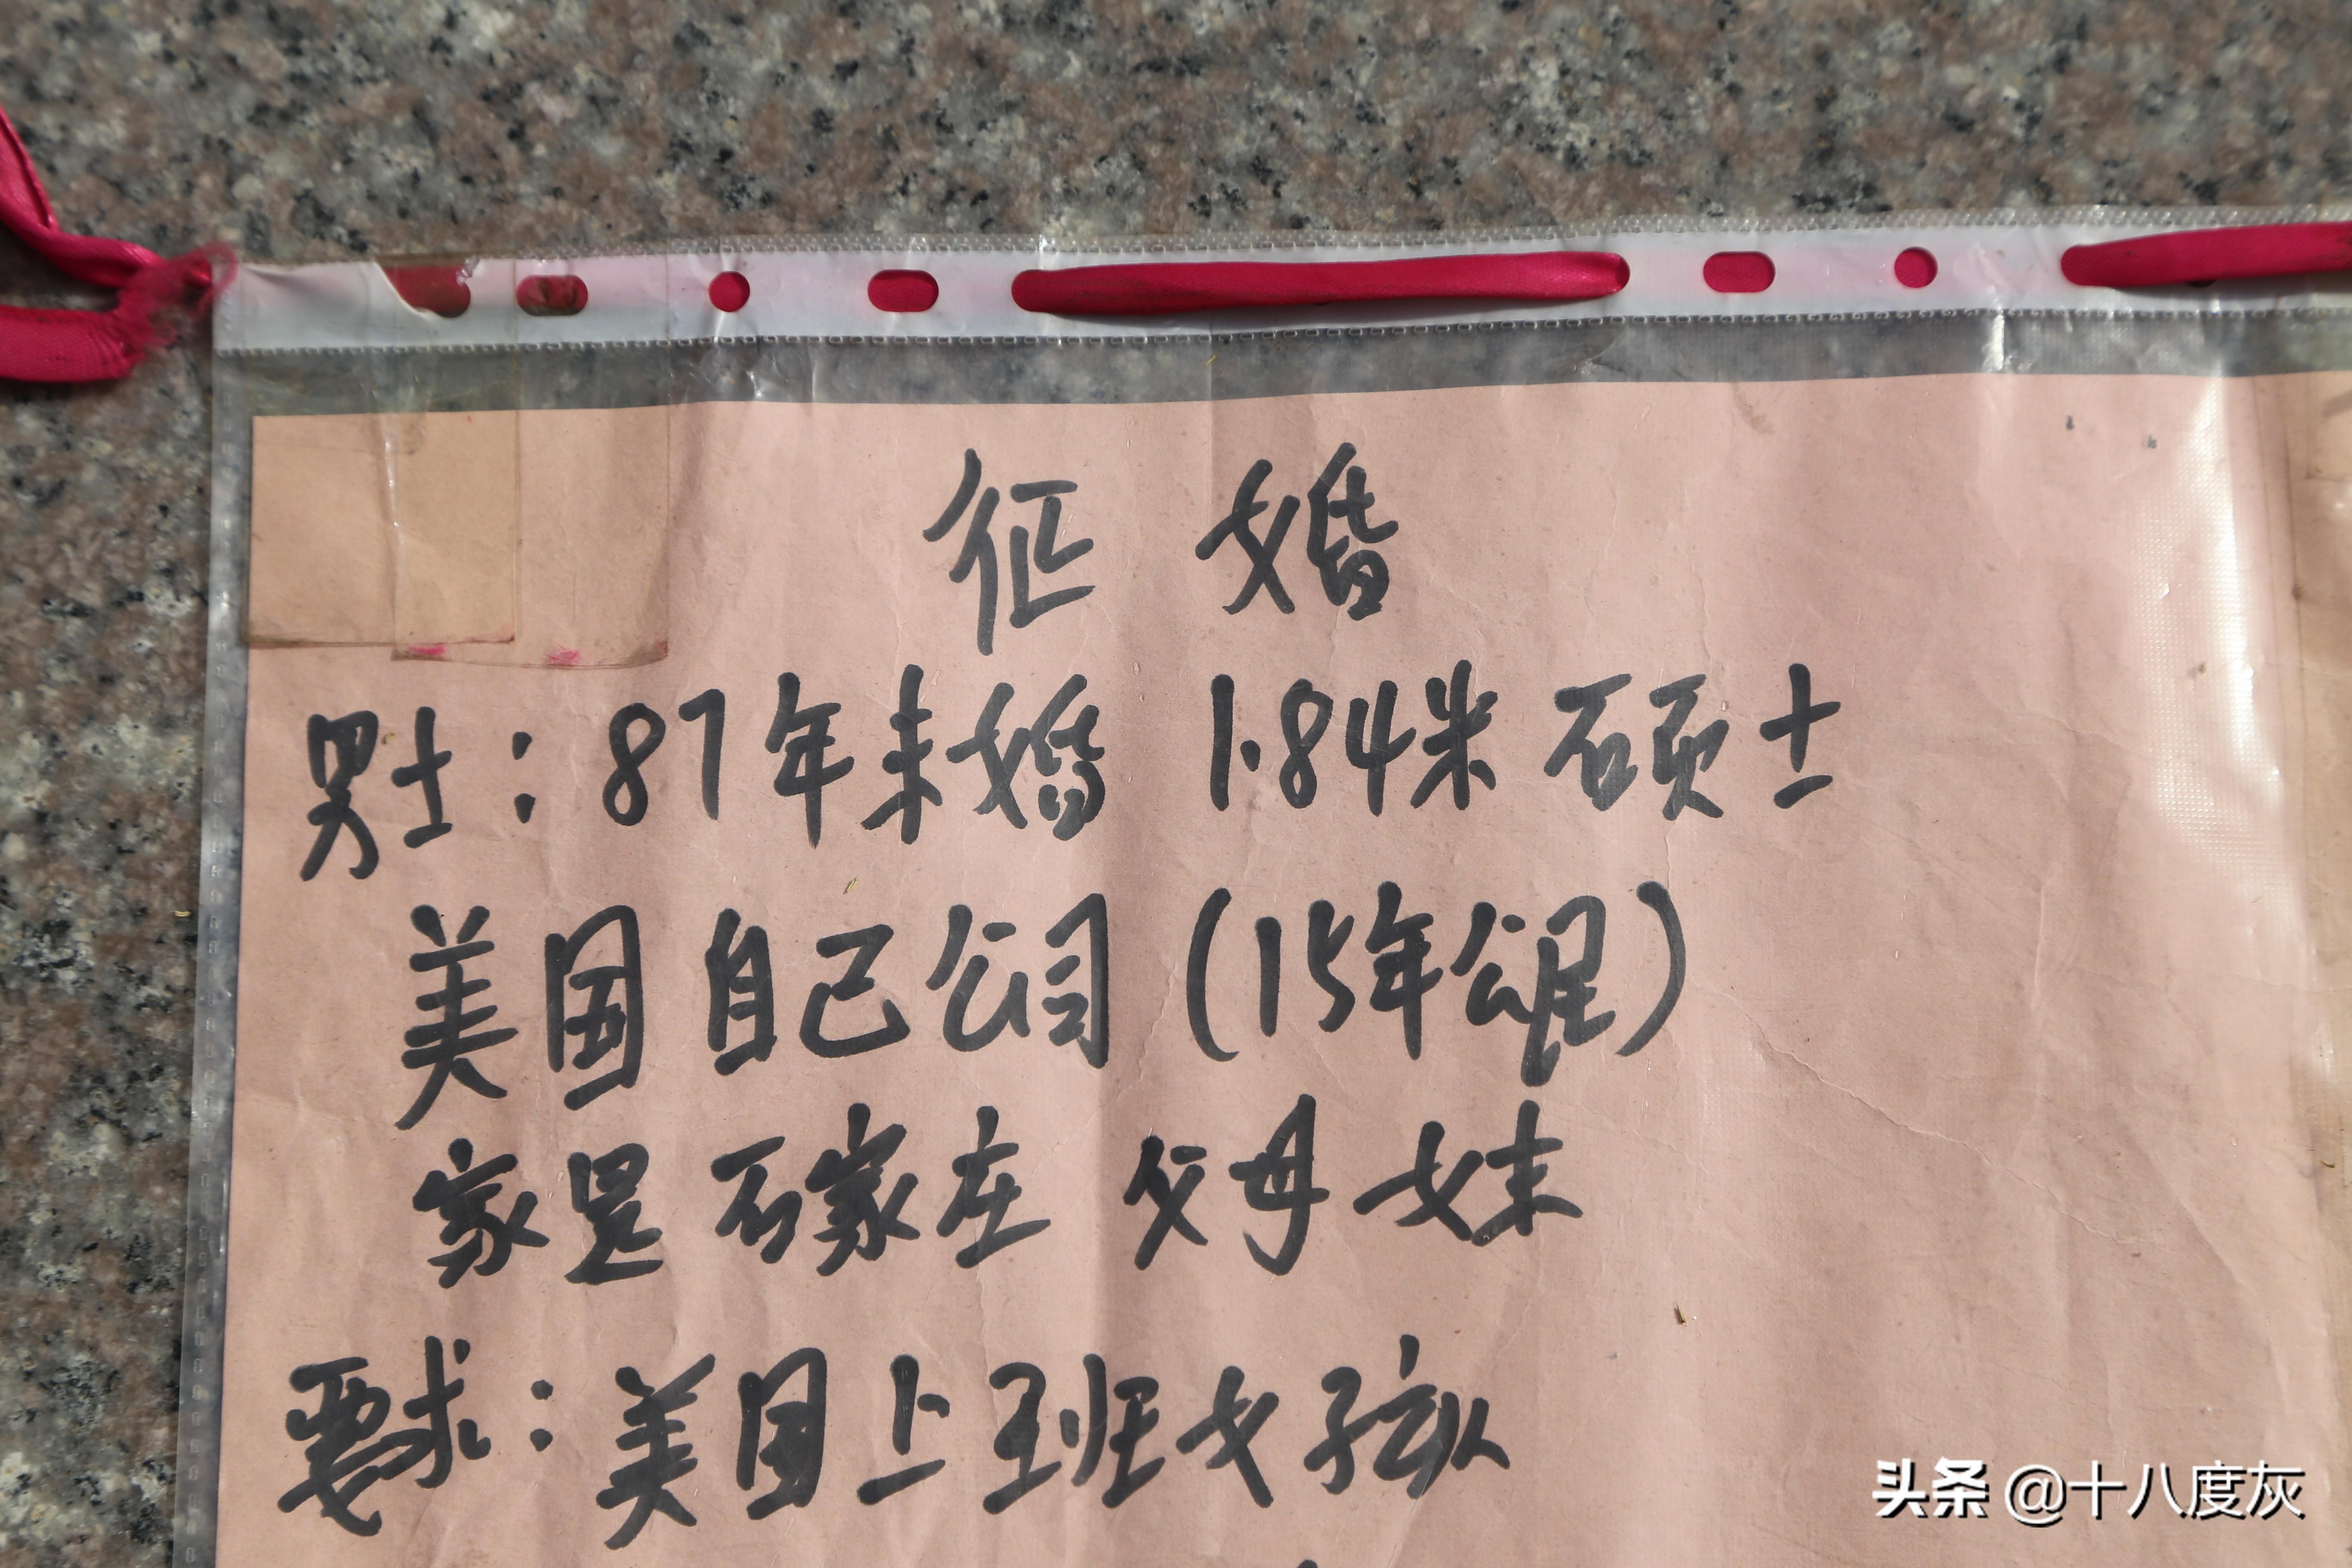 征婚
男士：87年未婚 1.84米 硕士
美国自己公司（15年
家是石家庄 父母妹
要求：美国上班女孩
头条 @十八度灰